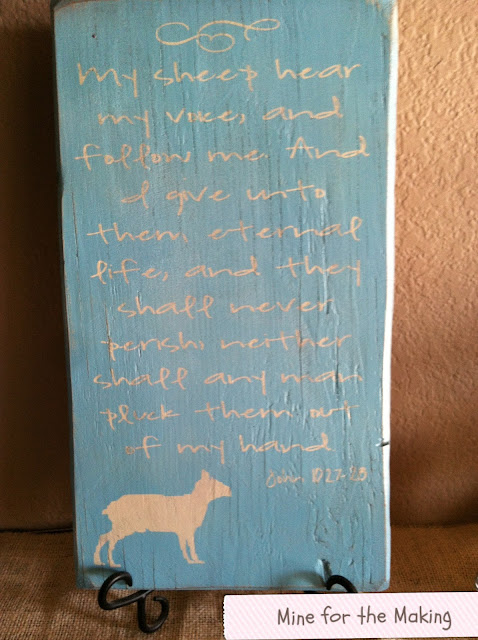 My sheep hear
my voice, and
follow me. And
I give unto
them eternal
life, and they
shall never
perish, neither
shall any man
pluck them out
of my hand
John 10:27-28
Mine for the Making